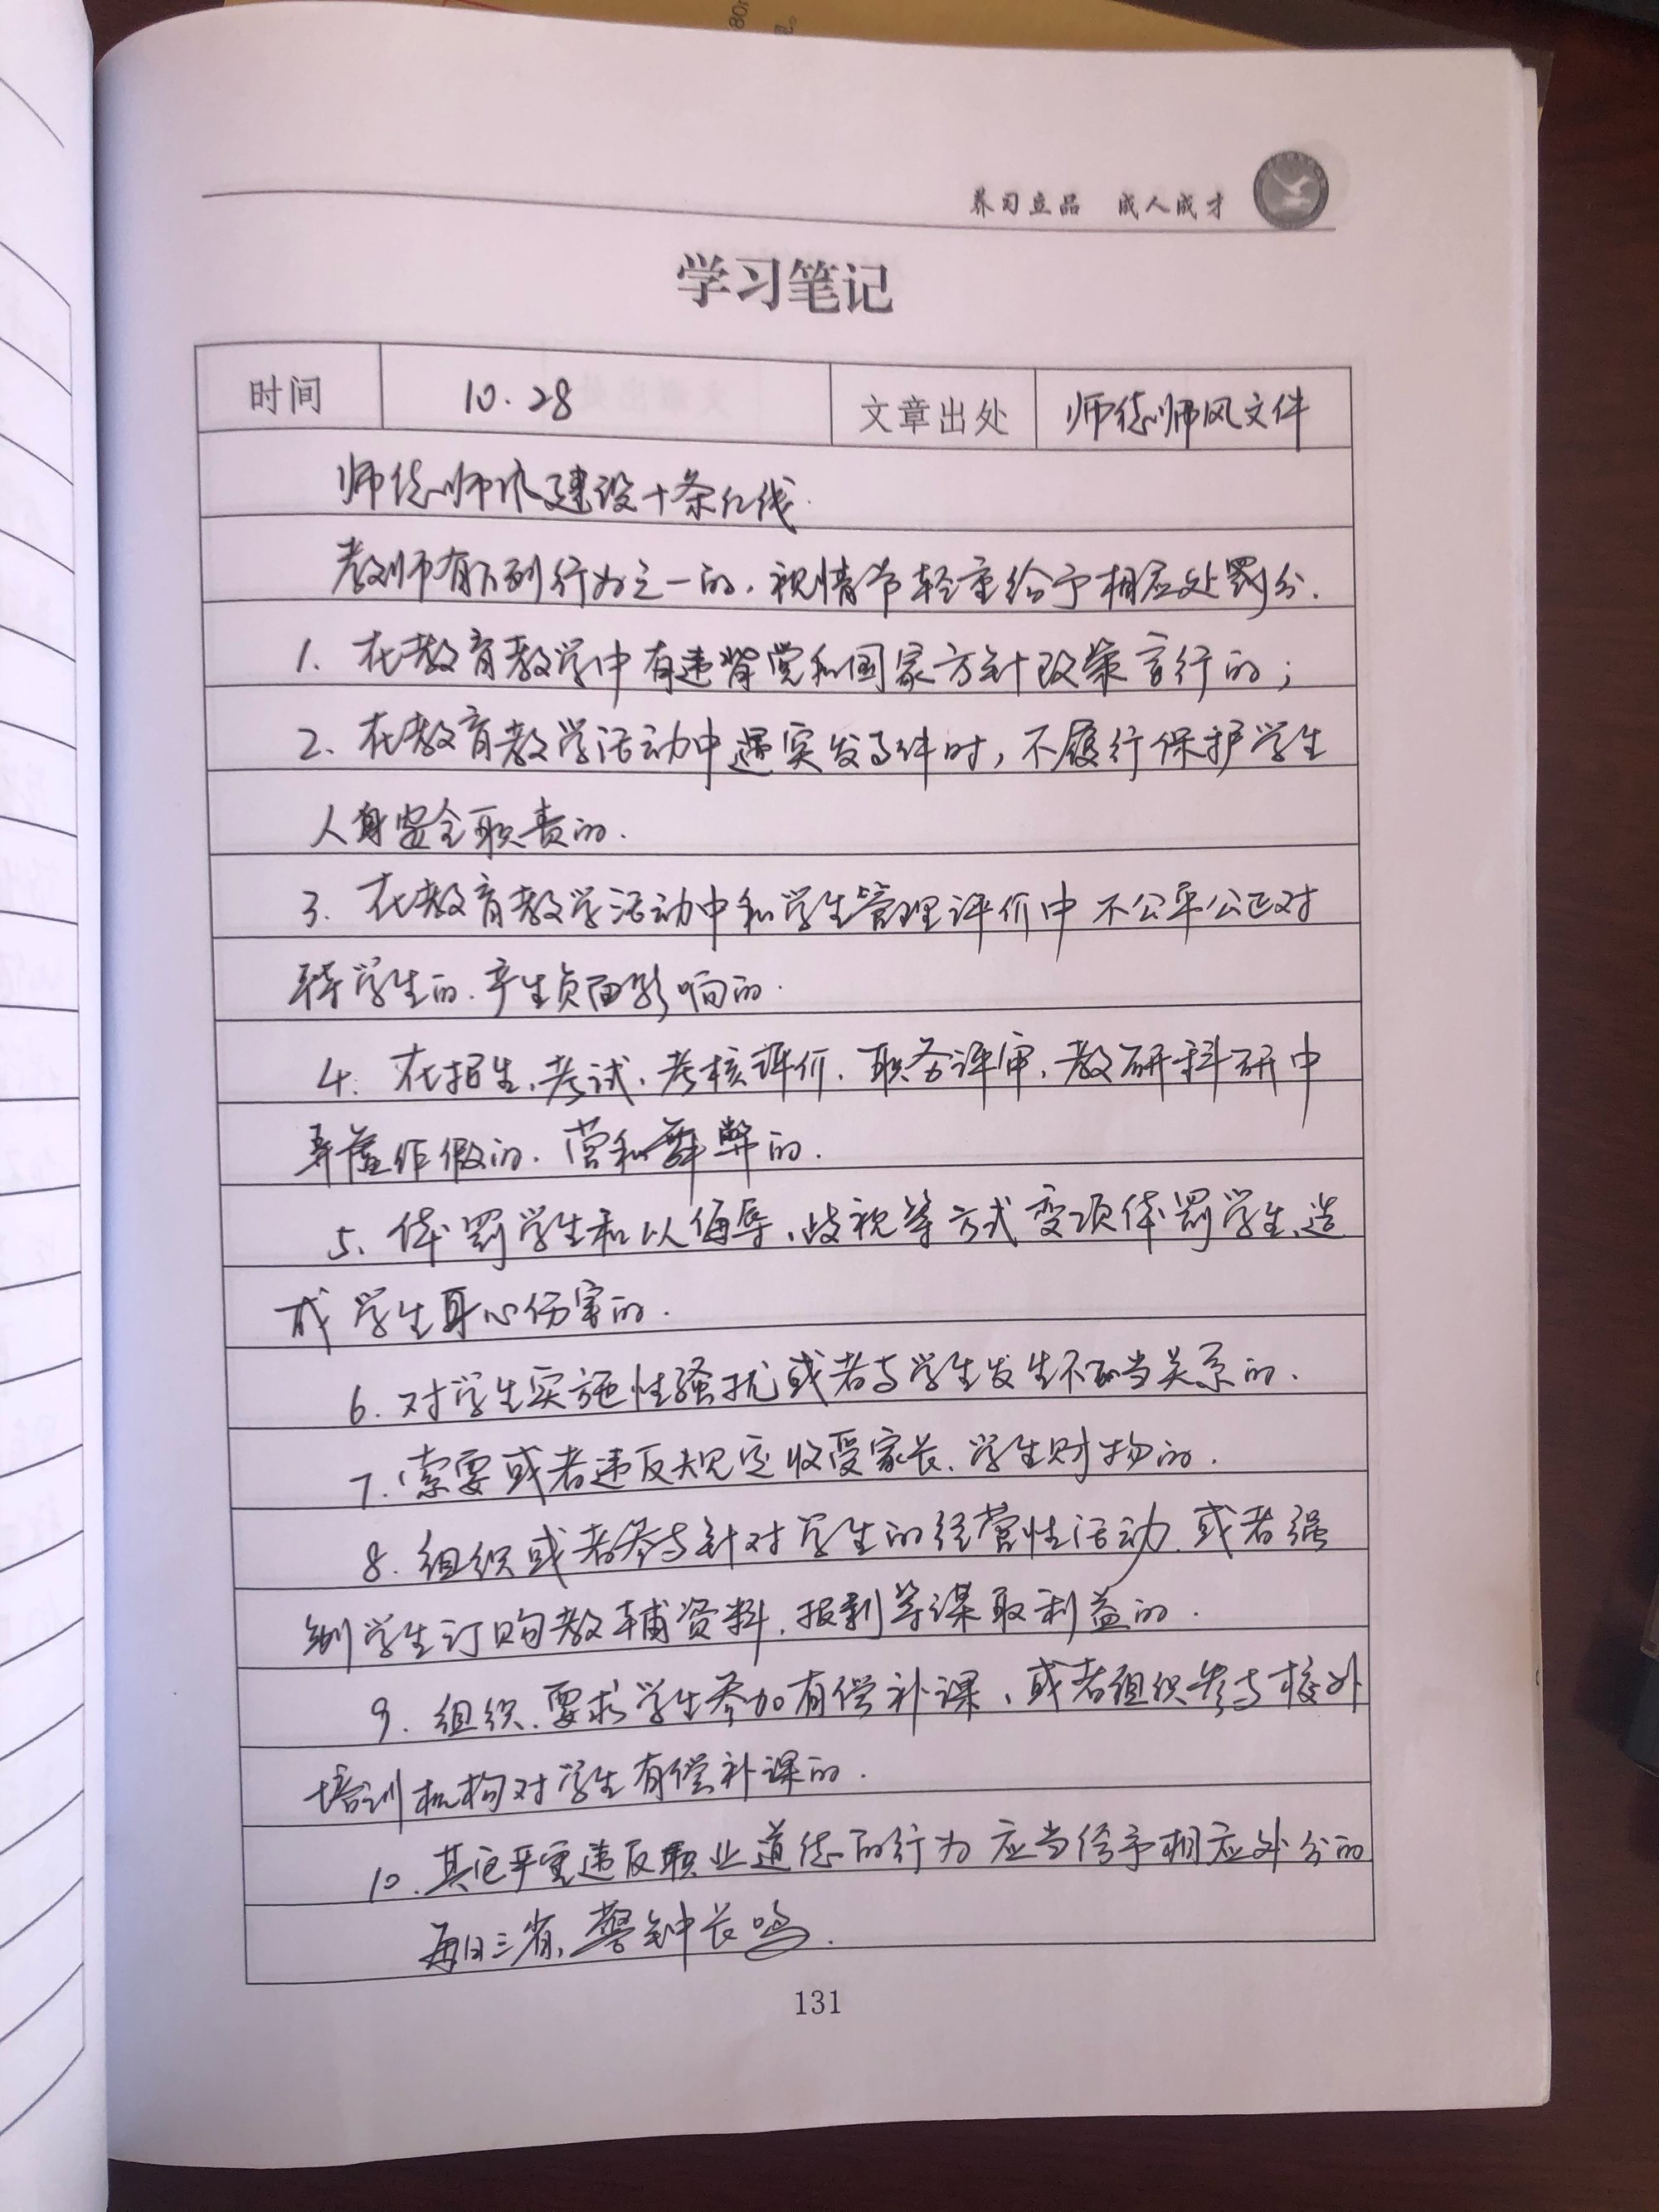 养习立品 成人成才
学习笔记
时间 10.28 文章出处 师德师风文件
师德师风建设十条红线.
教师有下列行为之一的,视情节轻重给予相应处罚分.
1. 在教育教学中有违背党和国家方针政策言行的;
2. 在教育教学活动中遇突发事件时,不履行保护学生
人身安全职责的.
3. 在教育教学活动中和学生管理评价中不公平公正对
待学生的.产生负面影响的.
4. 在招生、考试、考核评价、职务评审、教研科研中
弄虚作假的.营私舞弊的.
5、体罚学生和以侮辱、歧视等方式变项体罚学生,造
成学生身心伤害的.
6. 对学生实施性骚扰或者与学生发生不正当关系的.
7. 索要或者违反规定收受家长、学生财物的.
8. 组织或者参与针对学生的经营性活动.或者强
制学生订购教辅资料.报刊等谋取利益的.
9. 组织.要求学生参加有偿补课、或者组织参与校外
培训机构对学生有偿补课的.
10. 其它严重违反职业道德的行为应当给予相应处分的
每日三省,警钟长鸣.
131